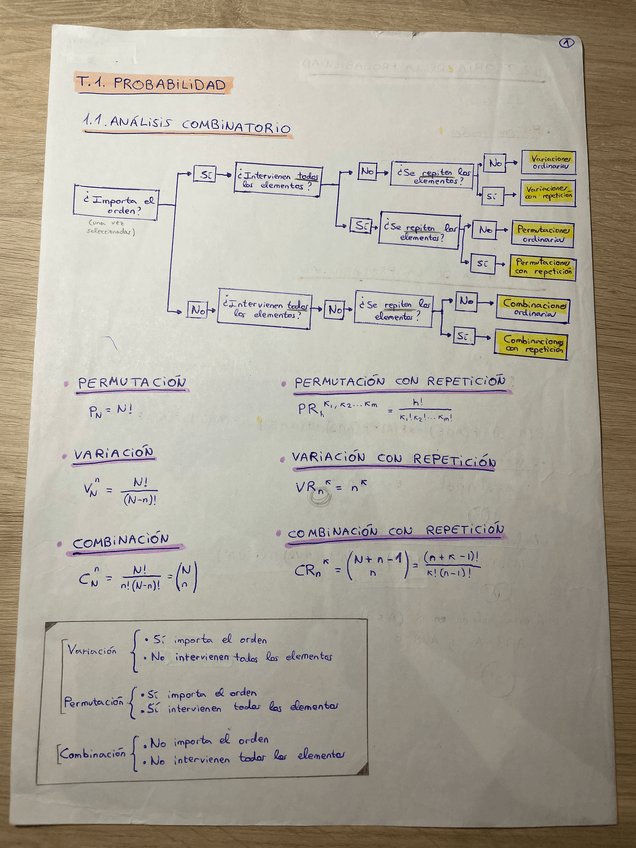 1
T.1. PROBABILIDAD
1.1. ANÁLISIS COMBINATORIO
¿Importa el orden?
(una vez seleccionados)
Sí
¿Intervienen todos los elementos?
No
¿Se repiten los elementos?
No
Variaciones ordinarias
Sí
Variaciones con repetición
Sí
¿Se repiten los elementos?
No
Permutaciones ordinarias
Sí
Permutaciones con repetición
No
¿Intervienen todos los elementos?
No
¿Se repiten los elementos?
No
Combinaciones ordinarias
Sí
Combinaciones con repetición
• PERMUTACIÓN
P_N = N!
• PERMUTACIÓN CON REPETICIÓN
PR_h^{K1, K2...Km} = h! / K1! K2! ... Km!
• VARIACIÓN
V_N^n = N! / (N-n)!
• VARIACIÓN CON REPETICIÓN
VR_n^K = n^K
• COMBINACIÓN
C_N^n = N! / n!(N-n)! = (N n)
• COMBINACIÓN CON REPETICIÓN
CR_n^K = (N+n-1 n) = (n+K-1)! / K!(n-1)!
Variación
• Sí importa el orden
• No intervienen todos los elementos
Permutación
• Sí importa el orden
• Sí intervienen todos los elementos
Combinación
• No importa el orden
• No intervienen todos los elementos